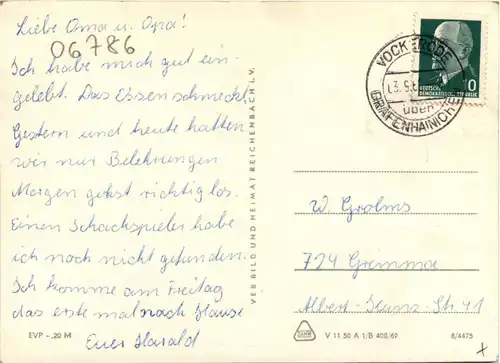 Liebe Oma u. Opa!
06786
Ich habe mich gut ein-
gelebt. Das Essen schmeckt
Gestern und heute hatten
wir nur Belehrungen
Morgen gehst richtig los.
Einen Schachspieler habe
ich noch nicht gefunden.
Ich komme am Freitag
das erste mal nach Hause
Euer Harald
EVP -,20 M
VEB BILD UND HEIMAT REICHENBACH I. V.
VOCKERODE
über
GRÄFENHAINICHEN
10
DEUTSCHE
DEMOKRATISCHE REPUBLIK
W. Grolms
724 Grimma
Albert-Kunz-Str. 41
V 11 50 A 1/B 408/69
8/4475